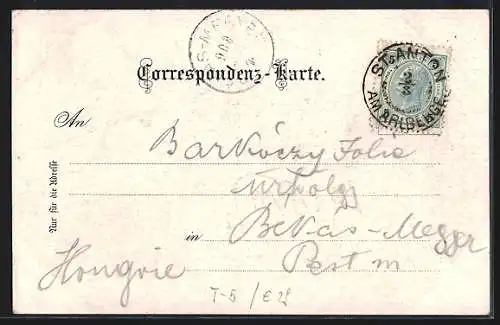 Correspondenz-Karte.
ST. ANTON
AM ARLBERGE
An
Barkóczy Jolie
Nur für die Adresse
in Békás-Megyer
Hongrie
Pest m
T-5 /